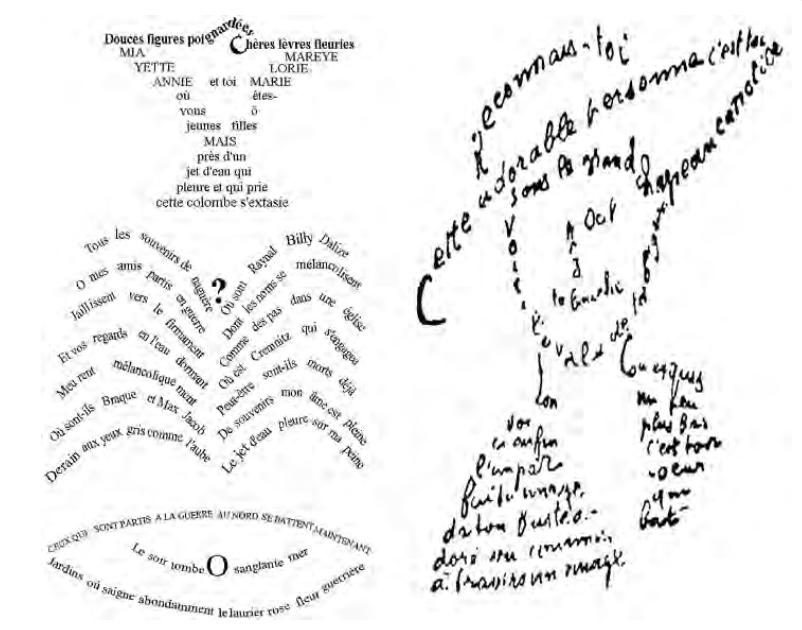 Douces figures poignardées
Chères lèvres fleuries
MIA MAREYE
YETTE LORIE
ANNIE et toi MARIE
où êtes-
vous ô
jeunes filles
MAIS
près d'un
jet d'eau qui
pleure et qui prie
cette colombe s'extasie
Tous les souvenirs de naguère
O mes amis partis en guerre
Jaillissent vers le firmament
Et vos regards en l'eau dormant
Meurent mélancoliquement
Où sont-ils Braque et Max Jacob
Derain aux yeux gris comme l'aube
?
Où sont Raynal Billy Dalize
Dont les noms se mélancolisent
Comme des pas dans une église
Où est Cremnitz qui s'engagea
Peut-être sont-ils morts déjà
De souvenirs mon âme est pleine
Le jet d'eau pleure sur ma peine
CEUX QUI SONT PARTIS A LA GUERRE AU NORD SE BATTENT MAINTENANT
Le soir tombe O sanglante mer
Jardins où saigne abondamment le laurier rose fleur guerrière
Reconnais-toi
Cette adorable personne c'est toi
sous le grand chapeau canotier
Oeil
Nez
la bouche
Voici l'ovale de ta figure
Ton
cou exquis
Voi
ci enfin
l'impar
faite image
de ton buste a
doré vu comme
à travers un nuage
un peu
plus bas
c'est ton
coeur
qui
bat